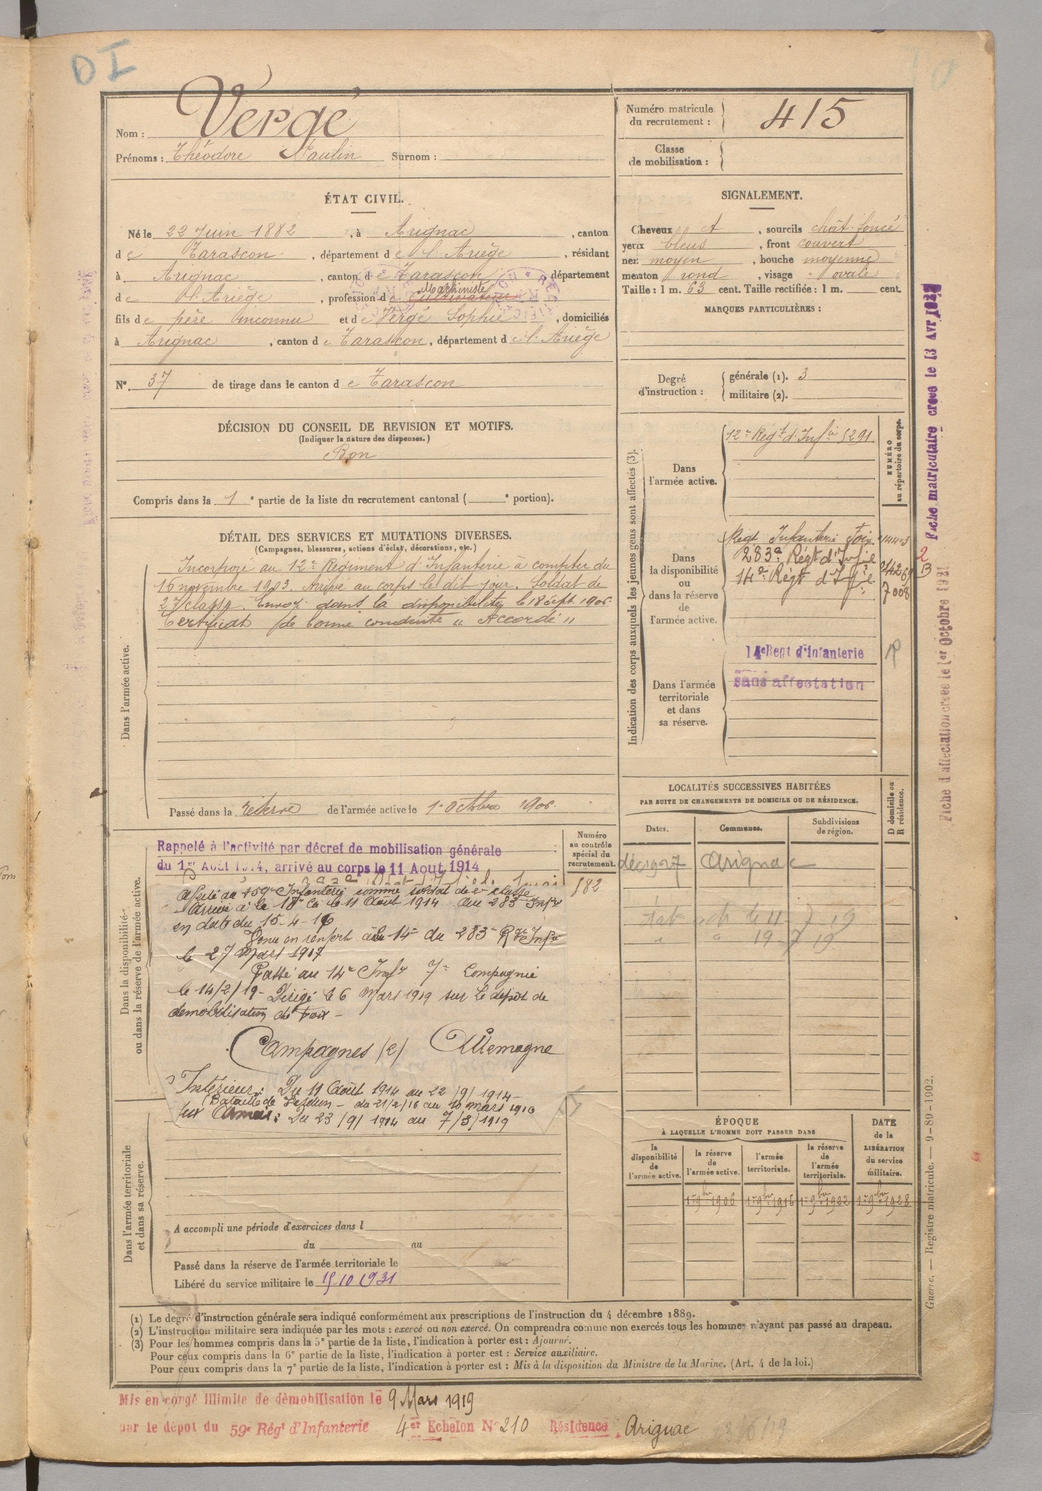 DI
Nom : Vergé
Prénoms : Théodore Paulin Surnom :
Numéro matricule du recrutement : 415
Classe de mobilisation :
ÉTAT CIVIL.
Né le 22 Juin 1882, à Arignac, canton
de Tarascon, département de l'Ariège, résidant
à Arignac, canton de Tarascon, département
de l'Ariège, profession de Cultivateur Machiniste
fils de père inconnu et de Vergé Sophie, domiciliés
à Arignac, canton de Tarascon, département de l'Ariège
N° 37 de tirage dans le canton de Tarascon
SIGNALEMENT.
Cheveux et, sourcils chât-foncé
yeux bleus, front couvert
nez moyen, bouche moyenne
menton rond, visage ovale
Taille : 1 m. 63 cent. Taille rectifiée : 1 m. cent.
MARQUES PARTICULIÈRES :
Degré d'instruction : générale (1). 3
militaire (2).
DÉCISION DU CONSEIL DE REVISION ET MOTIFS.
(Indiquer la nature des dispenses.)
Bon
Compris dans la 1e partie de la liste du recrutement cantonal ( e portion).
DÉTAIL DES SERVICES ET MUTATIONS DIVERSES.
(Campagnes, blessures, actions d'éclat, décorations, etc.)
Dans l'armée active.
Incorporé au 12e Régiment d'Infanterie à compter du
16 novembre 1903. Arrivé au corps le dit jour. Soldat de
2e classe. Envoi dans la disponibilité le 18 Sept 1906.
Certificat de bonne conduite " Accordé "
Passé dans la réserve de l'armée active le 1er Octobre 1906
Indication des corps auxquels les jeunes gens sont affectés (3).
NUMÉRO au répertoire du corps.
Dans l'armée active.
12e Régt d'Infie 5291
Dans la disponibilité ou dans la réserve de l'armée active.
Régt Infanterie Foix
283e Régt d'Infie
14e Régt d'Infie 7008
Dans l'armée territoriale et dans sa réserve.
14e Regt d'Infanterie
sans affectation
Fiche matriculaire créée le 13 Avr
Fiche d'affectation créée le 1er Octobre 1921
LOCALITÉS SUCCESSIVES HABITÉES
PAR SUITE DE CHANGEMENTS DE DOMICILE OU DE RÉSIDENCE.
Dates. Communes. Subdivisions de région. D domicile ou R résidence.
Arignac
Dans la disponibilité ou dans la réserve de l'armée active.
Numéro au contrôle spécial du recrutement.
182
Rappelé à l'activité par décret de mobilisation générale
du 1er Août 1914, arrivé au corps le 11 Aout 1914
en date du 15-4-16
Venu en renfort du 283e Rt Infie
le 27 Mars 1917
Passé au 14e Infie 7e Compagnie
le 14/2/19 - Dirigé le 6 Mars 1919 sur le dépôt de
démobilisation de Foix -
Campagnes (c) Allemagne
Intérieur : Du 11 Août 1914 au 22/9/1914 -
Bataille de Verdun - du 21/2/16 au 10 mars 1916
Aux Armées : Du 23/9/1914 au 7/3/1919
ÉPOQUE
À LAQUELLE L'HOMME DOIT PASSER DANS
la disponibilité de l'armée active.
la réserve de l'armée active.
l'armée territoriale.
la réserve de l'armée territoriale.
DATE de la LIBÉRATION du service militaire.
Dans l'armée territoriale et dans sa réserve.
A accompli une période d'exercices dans l
du au
Passé dans la réserve de l'armée territoriale le
Libéré du service militaire le 15/10/1931
Guerre. — Registre matricule. — 9-89-1902.
(1) Le degré d'instruction générale sera indiqué conformément aux prescriptions de l'instruction du 4 décembre 1889.
(2) L'instruction militaire sera indiquée par les mots : exercé ou non exercé. On comprendra comme non exercés tous les hommes n'ayant pas passé au drapeau.
(3) Pour les hommes compris dans la 5e partie de la liste, l'indication à porter est : Ajourné.
Pour ceux compris dans la 6e partie de la liste, l'indication à porter est : Service auxiliaire.
Pour ceux compris dans la 7e partie de la liste, l'indication à porter est : Mis à la disposition du Ministre de la Marine. (Art. 4 de la loi.)
Mis en congé illimité de démobilisation le 9 Mars 1919
par le dépôt du 59e Rég. d'Infanterie 4er Echelon N° 210 Résidence Arignac